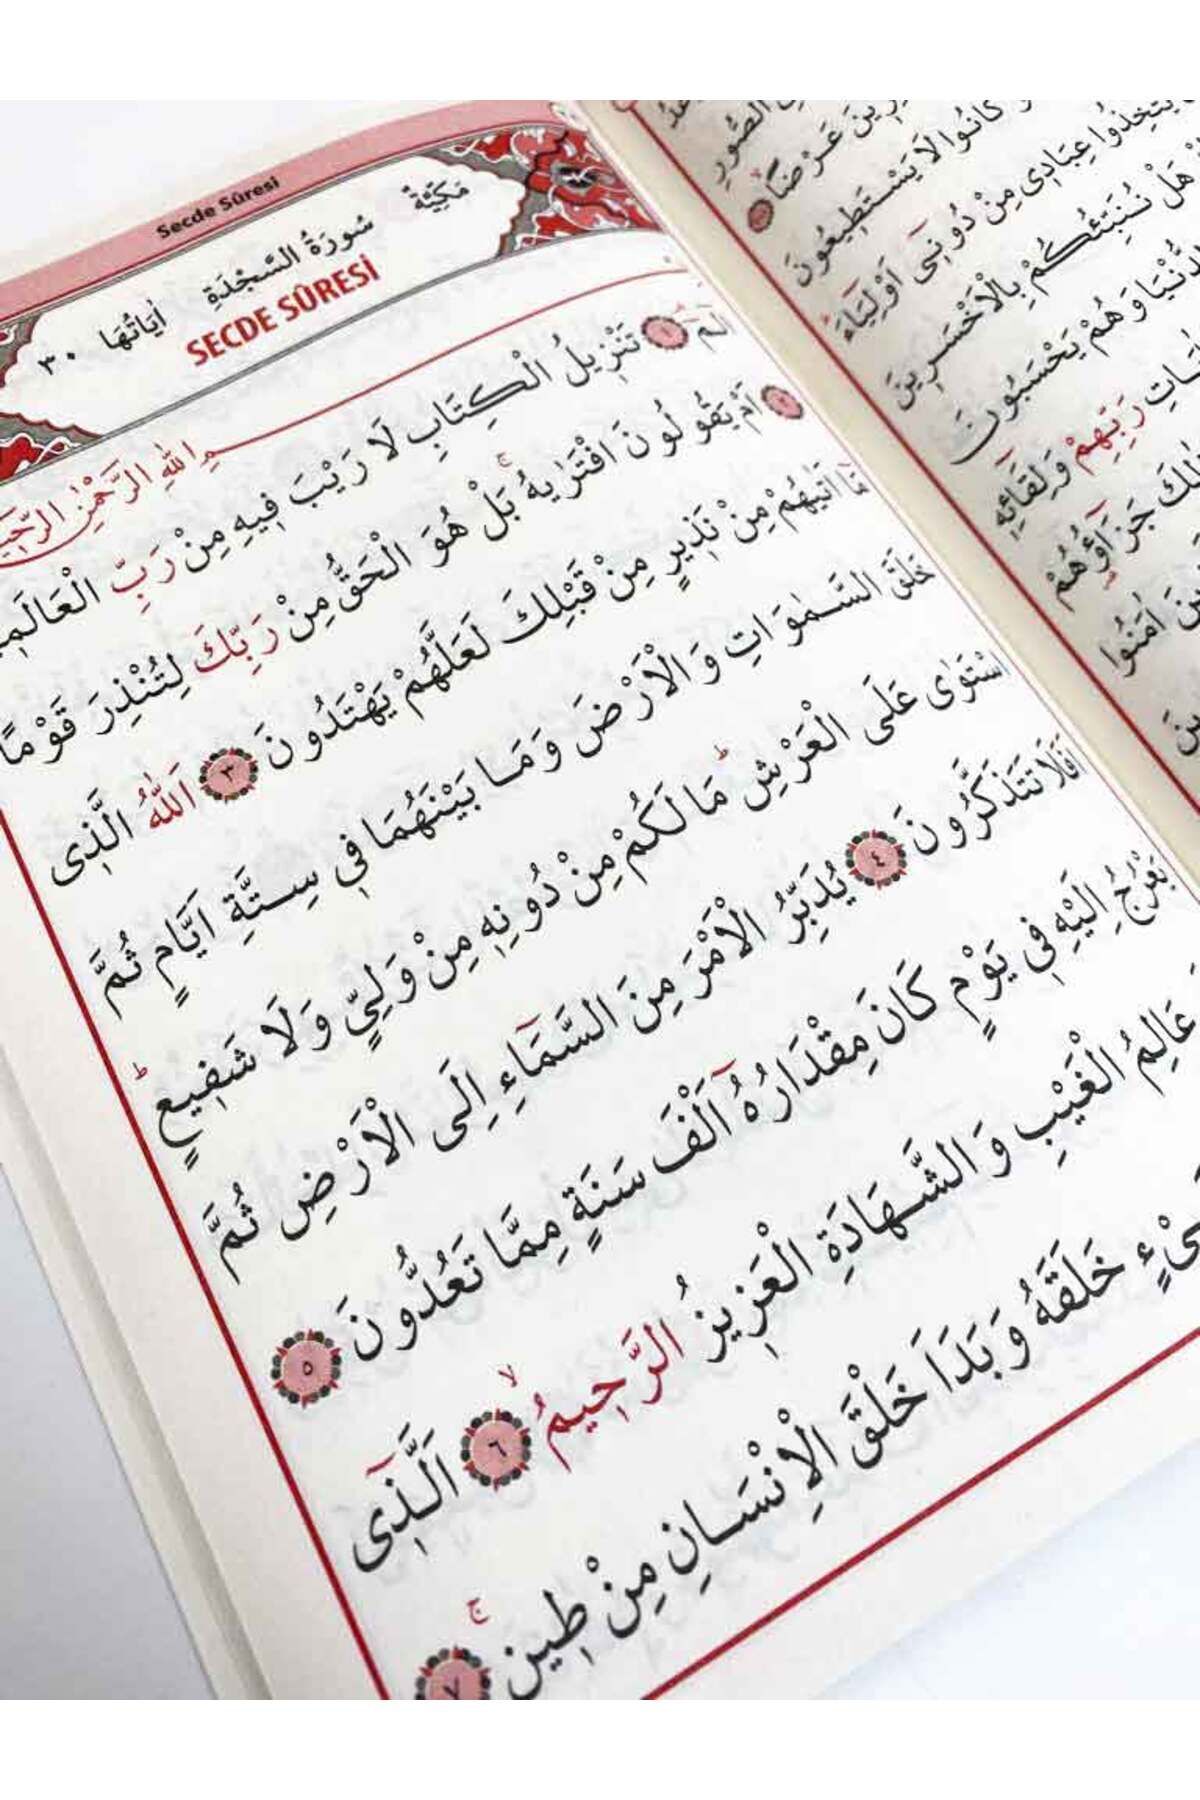 Secde Sûresi
سُورَةُ السَّجْدَةِ مَكِّيَّةٌ
اٰيَاتُهَا ٣٠
SECDE SÛRESİ
اللّٰهِ الرَّحْمٰنِ الرَّحٖي
الٓمٓ ١ تَنْزٖيلُ الْكِتَابِ لَا رَيْبَ فٖيهِ مِنْ رَبِّ الْعَالَمٖ
٢ اَمْ يَقُولُونَ افْتَرٰيهُۚ بَلْ هُوَ الْحَقُّ مِنْ رَبِّكَ لِتُنْذِرَ قَوْمًا
مَٓا اَتٰيهُمْ مِنْ نَذٖيرٍ مِنْ قَبْلِكَ لَعَلَّهُمْ يَهْتَدُونَ ٣ اَللّٰهُ الَّذٖى
خَلَقَ السَّمٰوَاتِ وَالْاَرْضَ وَمَا بَيْنَهُمَا فٖى سِتَّةِ اَيَّامٍ ثُمَّ
اسْتَوٰى عَلَى الْعَرْشِؕ مَا لَكُمْ مِنْ دُونِهٖ مِنْ وَلِىٍّ وَلَا شَفٖيعٍؕ
اَفَلَا تَتَذَكَّرُونَ ٤ يُدَبِّرُ الْاَمْرَ مِنَ السَّمَٓاءِ اِلَى الْاَرْضِ ثُمَّ
يَعْرُجُ اِلَيْهِ فٖى يَوْمٍ كَانَ مِقْدَارُهُٓ اَلْفَ سَنَةٍ مِمَّا تَعُدُّونَ ٥
عَالِمُ الْغَيْبِ وَالشَّهَادَةِ الْعَزٖيزُ الرَّحٖيمُۙ ٦ اَلَّذٖٓى
شَىْءٍ خَلَقَهُ وَبَدَاَ خَلْقَ الْاِنْسَانِ مِنْ طٖينٍۚ ٧
الصُّورِ
عَرْضًا
كَانُوا لَا يَسْتَطٖيعُونَ
يَتَّخِذُوا عِبَادٖى مِنْ دُونٖٓى اَوْلِيَٓاءَؕ
هَلْ نُنَبِّئُكُمْ بِالْاَخْسَرٖينَ
الدُّنْيَا وَهُمْ يَحْسَبُونَ
رَبِّهِمْ وَلِقَٓائِهٖ
جَزَٓاؤُهُمْ
اٰمَنُوا